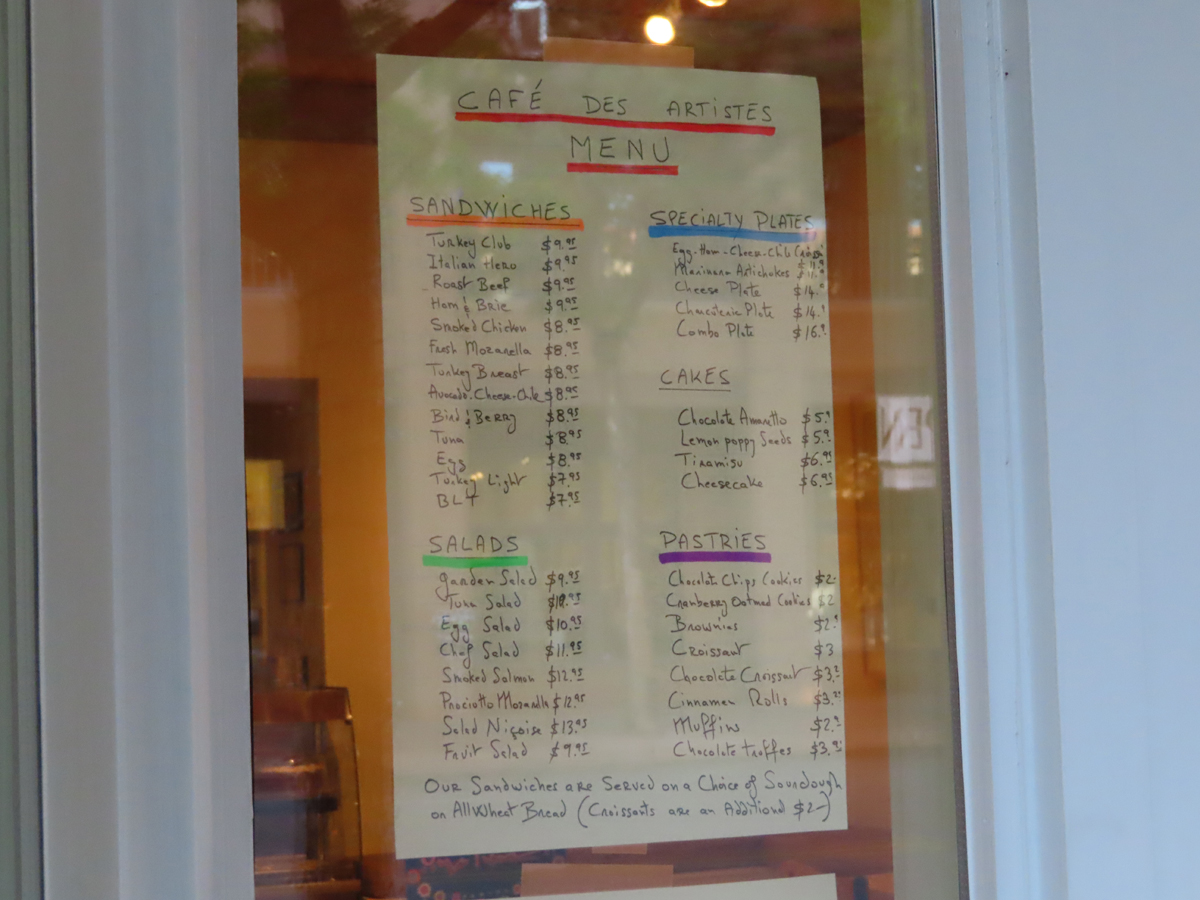 CAFÉ DES ARTISTES
MENU
SANDWICHES
Turkey Club $9.95
Italian Hero $9.95
Roast Beef $9.95
Ham & Brie $9.95
Smoked Chicken $8.95
Fresh Mozarella $8.95
Turkey Breast $8.95
Avocado-Cheese-Chile $8.95
Bird & Berry $8.95
Tuna $8.95
Egg $8.95
Turkey Light $7.95
BLT $7.95
SALADS
Garden Salad $9.95
Tuna Salad
Egg Salad $10.95
Chef Salad $11.95
Smoked Salmon $12.95
Prociotto Mozarella $12.95
Salad Niçoise $13.95
Fruit Salad $9.95
SPECIALTY PLATES
Egg-Ham-Cheese-Chile
Artichokes
Cheese Plate $14.
Charcuterie Plate $14.
Combo Plate $16.
CAKES
Chocolate Amaretto $5.
Lemon poppy Seeds $5.
Tiramisu $6.95
Cheesecake $6.95
PASTRIES
Chocolate Chips Cookies $2
Cranberry Oatmeal Cookies $2
Brownies $2.
Croissant $3
Chocolate Croissant $3.
Cinnamon Rolls $3.
Muffins $2.
Chocolate truffes $3.
Our Sandwiches are Served on a Choice of Sourdough
or All Wheat Bread (Croissants are an Additional $2-)
PEN